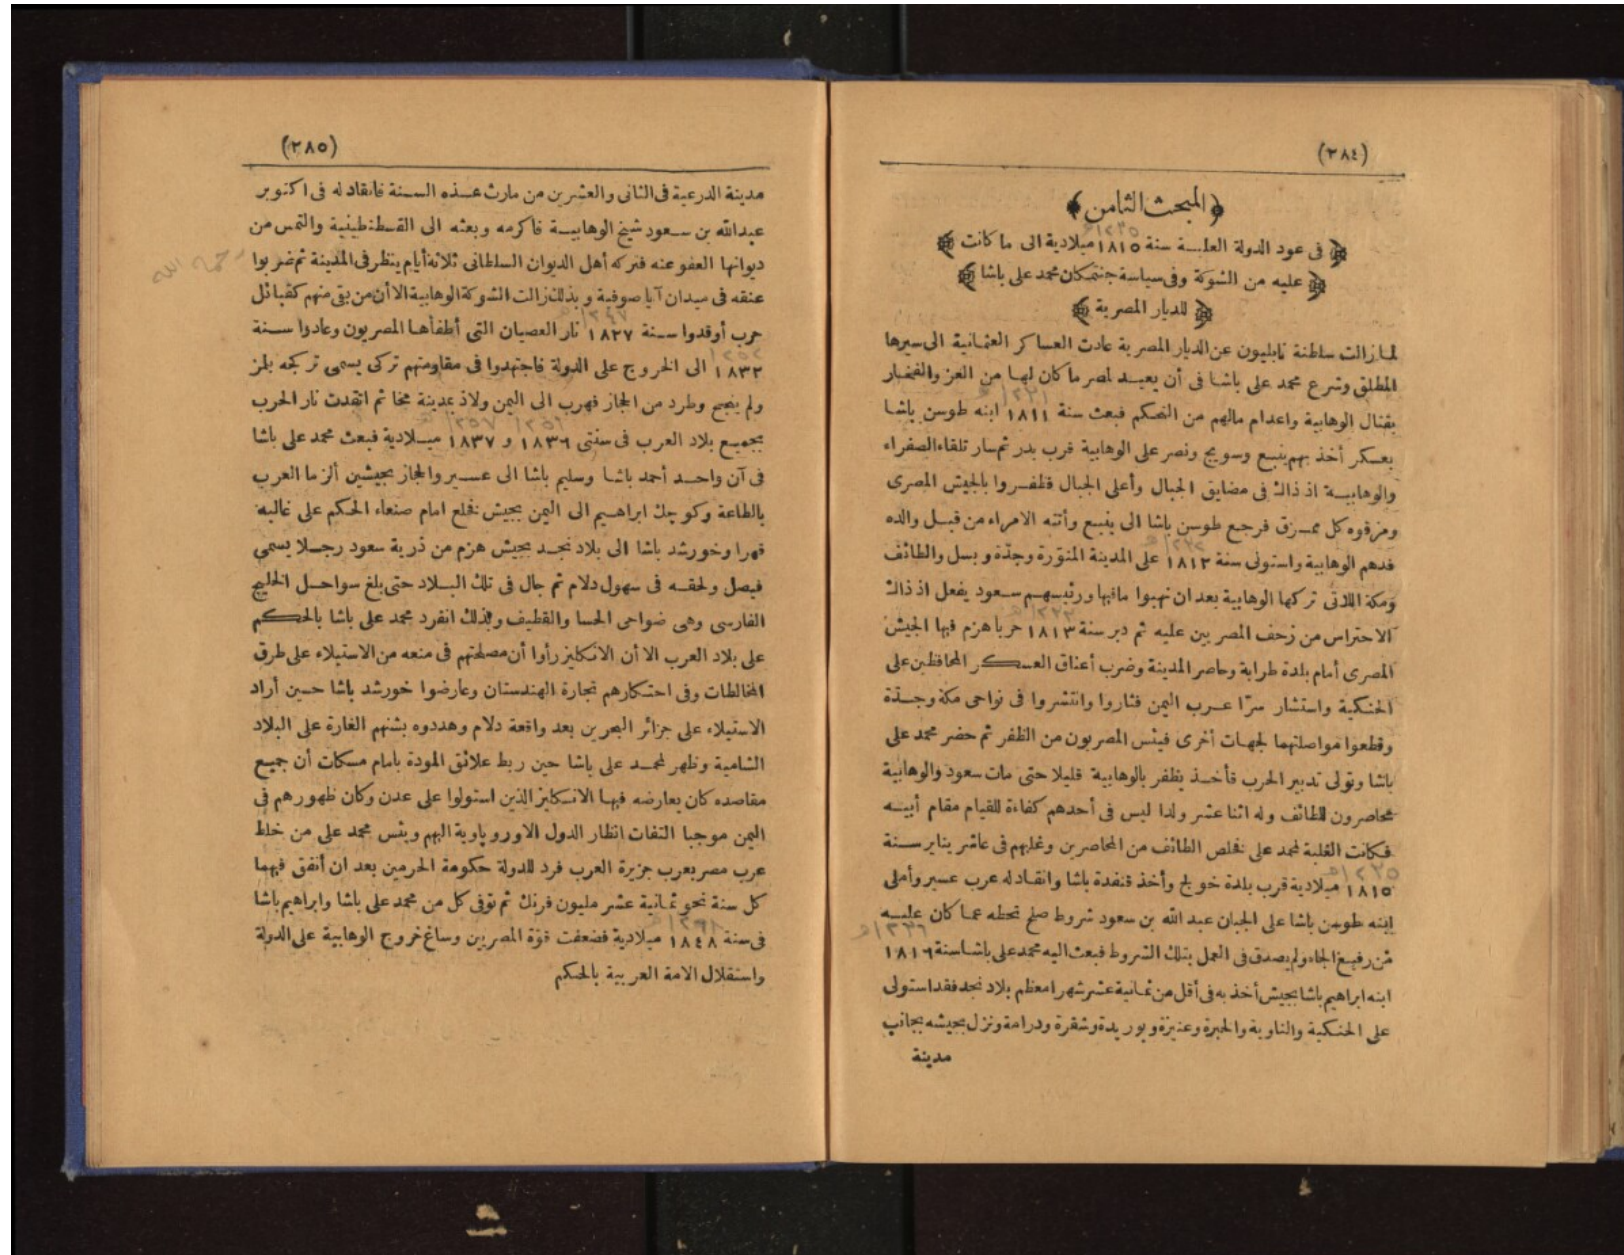 (٢٨٤)
﴿ المبحث الثامن ﴾
﴿ فى عود الدولة العليـة سنة ١٨١٥ ميلادية الى ما كانت ﴾
١٢٣٥هـ
﴿ عليه من الشوكة وفى سياسة جنتمكان محمد على باشا ﴾
﴿ للديار المصرية ﴾
لما زالت سلطنة نابليون عن الديار المصرية عادت العساكر العثمانية الى سيرها
المطلق وشرع محمد على باشا فى أن يعيـد لمصر ما كان لها من العز والفخار
بقتال الوهابية واعدام مالهم من التحكم فبعث سنة ١٨١١ ابنه طوسن باشا
بعسكر أخذ بهم ينبع وسويج ونصر على الوهابية قرب بدر ثم سار تلقاء الصفراء
والوهابيـة اذ ذاك فى مضايق الجبال وأعلى الجبال فظفـروا بالجيش المصرى
ومزقوه كل ممـزق فرجع طوسن باشا الى ينبع وأتته الامراء من قبـل والده
فدهم الوهابية واستولى سنة ١٨١٢ على المدينة المنورة وجدّة وبسل والطائف
ومكة اللاتى تركها الوهابية بعد ان نهبوا مافيها ورئيسـهم سـعود يفعل اذ ذاك
الاحتراس من زحف المصريين عليه ثم دبر سنة ١٨١٣ حربا هزم فيها الجيش
المصرى أمام بلدة طرابة وحاصر المدينة وضرب أعناق العسكر المحافظين على
الحنكية واستشار سرّا عـرب اليمن فثاروا وانتشروا فى نواحى مكة وجـدّة
وقطعوا مواصلتهما لجهات أخرى فيئس المصريون من الظفر ثم حضر محمد على
باشا وتولى تدبير الحرب فأخـذ يظفر بالوهابية قليلا حتى مات سعود والوهابية
محاصرون للطائف وله اثنا عشر ولدا ليس فى أحدهم كفاءة للقيام مقام أبيـه
فكانت الغلبة لمحمد على فخلص الطائف من المحاصرين وغلبهم فى عاشر يناير سـنة
١٨١٥ ميلادية قرب بلدة خولج وأخذ قنفدة باشا وانقاد له عرب عسير وأملى
ابنه طوسن باشا على الجبان عبد الله بن سعود شروط صلح تحطه عما كان عليـه
من رفيع الجاه ولم يصدق فى العمل بتلك الشروط فبعث اليه محمد على باشا سنة ١٨١٦
ابنه ابراهيم باشا بجيش أخذ به فى أقل من ثمانية عشر شهرا معظم بلاد نجد فقد استولى
على الحنكية والناوية والحبرة وعنيزة وبوريدة وشقرة ودرامة ونزل بجيشه بجانب
مدينة
(٢٨٥)
مدينة الدرعية فى الثانى والعشرين من مارث هـذه السـنة فانقاد له فى اكتوبر
عبد الله بن سـعود شيخ الوهابيـة فأكرمه وبعثه الى القسطنطينية والتمس من
ديوانها العفو عنه فتركه أهل الديوان السلطانى ثلاثة أيام ينظر فى المدينة ثم ضربوا
رحمه الله
عنقه فى ميدان آيا صوفية وبذلك زالت الشوكة الوهابية الا أن من بقى منهم كقبائل
حرب أوقدوا سـنة ١٨٢٧ نار العصيان التى أطفأها المصريون وعادوا سـنة
١٨٣٢ الى الخروج على الدولة فاجتهدوا فى مقاومتهم تركى يسمى تركجه بلمز
ولم ينجح وطرد من الحجاز فهرب الى اليمن ولاذ بمدينة مخا ثم اتقدت نار الحرب
بجميـع بلاد العرب فى سنتى ١٨٣٦ و ١٨٣٧ ميـلادية فبعث محمد على باشا
فى آن واحـد أحمد باشا وسليم باشا الى عسـير والحجاز بجيشين ألزما العرب
بالطاعة وكوچك ابراهـيم الى اليمن بجيش فخلع امام صنعاء الحكم على غالبه
قهرا وخورشد باشا الى بلاد نجـد بجيش هزم من ذرية سعود رجـلا يسمى
فيصل ولحقـه فى سهول دلام ثم جال فى تلك البـلاد حتى بلغ سواحـل الخليج
الفارسى وهى ضواحى الحسا والقطيف وبذلك انفرد محمد على باشا بالحكم
على بلاد العرب الا أن الانكليز رأوا أن مصلحتهم فى منعه من الاستيلاء على طرق
المخالطات وفى احتكارهم تجارة الهندستان وعارضوا خورشد باشا حـين أراد
الاستيلاء على جزائر البحرين بعد واقعة دلام وهددوه بشنهم الغارة على البلاد
الشامية وظهر لمحمـد على باشا حين ربط علائق المودة بامام مسكات أن جميع
مقاصده كان يعارضه فيها الانكليز الذين استولوا على عدن وكان ظهورهم فى
اليمن موجبا التفات انظار الدول الاوروپاوية اليهم ويئس محمد على من خلط
عرب مصر بعرب جزيرة العرب فرد للدولة حكومة الحرمين بعد ان أنفق فيهما
كل سنة نحو ثمانية عشر مليون فرنك ثم توفى كل من محمد على باشا وابراهيم باشا
فى سنة ١٨٤٨ ميلادية فضعفت قوّة المصريين وساغ خروج الوهابية على الدولة
واستقلال الامة العربية بالحكم